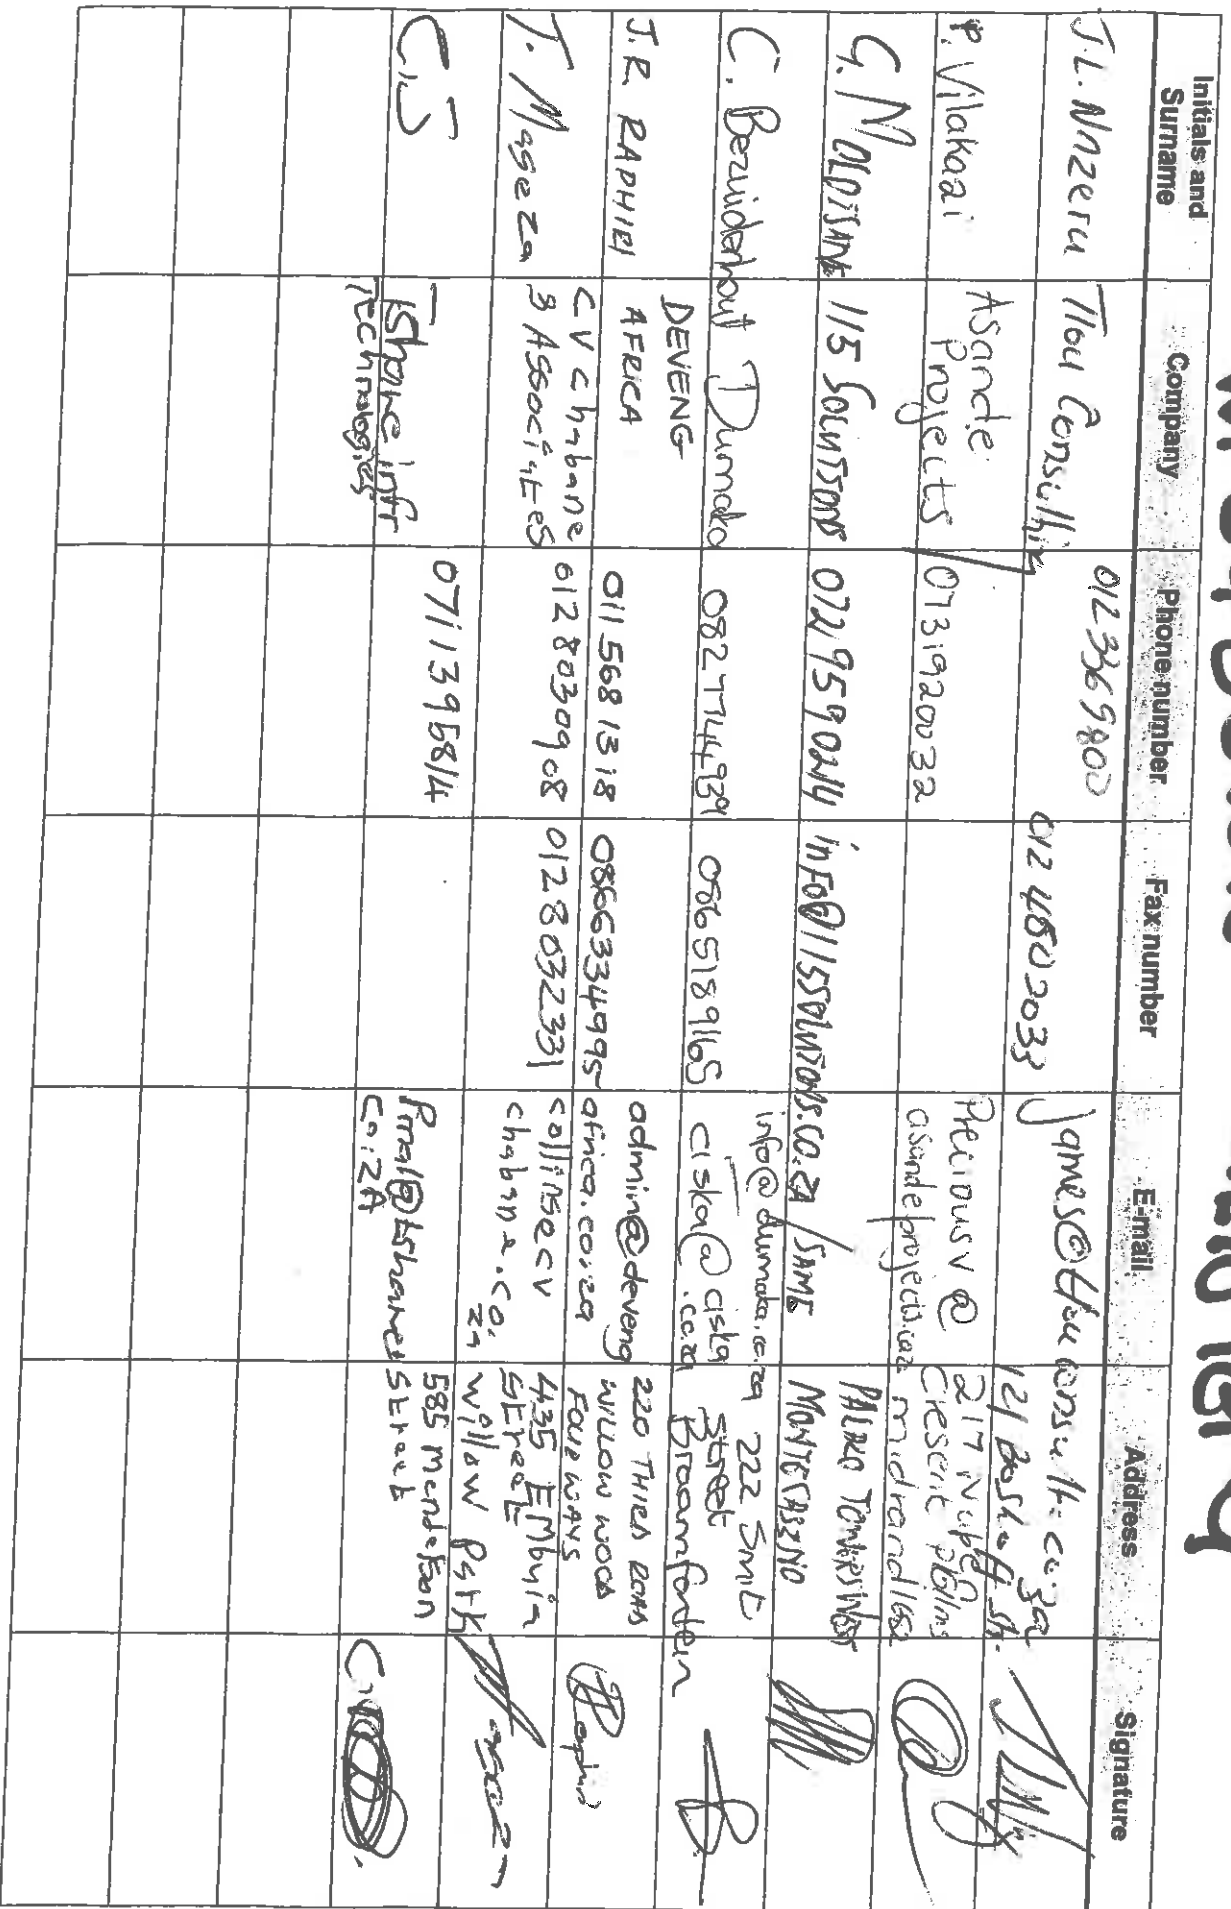 Initials and Surname | Company | Phone number | Fax number | E-mail | Address | Signature
J.L. Nnzeru | Tlou Consulting | 012 3369800 | 012 4602033 | James@tlouconsult.co.za | 121 Boshoff Str.
P. Vilakazi | Asande Projects | 0731920032 | Precious v@ asandeprojects.co.za | 217 Nupen Cresent palms midrand 1682
G. MOLOTSANE | 115 SOLUTIONS | 0729590214 | info@115solutions.co.za / SAME | MONTECASINO
C. Bezuidenhout | Dumako | 0827744939 | 0865189165 | info@dumako.co.za ciska@ciska.co.za | 222 Smit Street Braamfontein
J.R. RAPHIRI | DEVENG AFRICA | 011 568 1318 | 0866334995 | admin@deveng africa.co.za | 220 THIRD ROAD WILLOW WOOD FOURWAYS
T. Maseza | CV Chabane 3 Associates | 0128030908 | 0128032331 | collins@cv chabane.co.za | 435 EMbuia Street Willow Park
C.J | Tshane infr Technologies | 0711395814 | Pmal@tshane co.za | 585 Mendelson Street